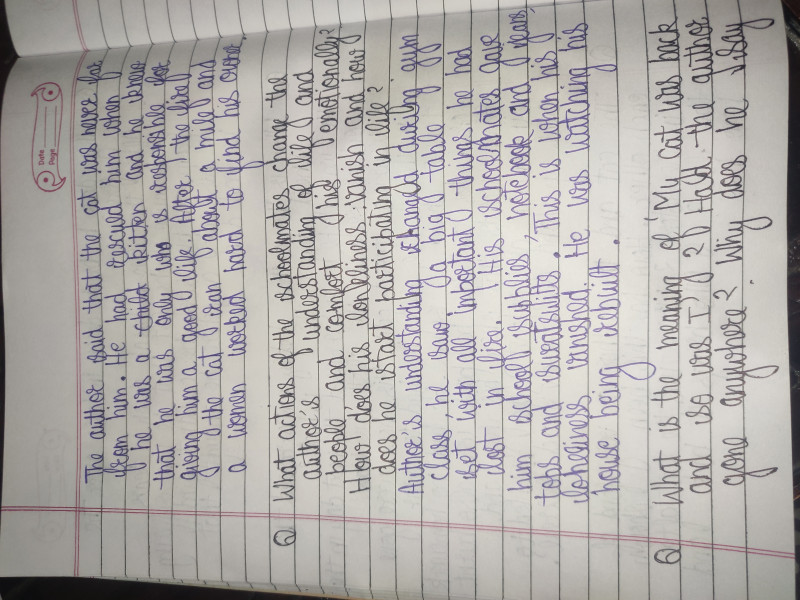 Date
Page
The author said that the cat was never far
from him. He had rescued him when
he was a child kitten and he knew
that he was only who is responsible for
giving him a good life. After the fire,
the cat ran about a mile and
a women worked hard to find his owner.
Q What actions of the schoolmates change the
author's understanding of life and
people and comfort his emotionally?
How does his loneliness vanish and how
does he start participating in life?
Author's understanding changed during gym
class, he saw a big table
set with all important things he had
lost in fire. His schoolmates gave
him school supplies, notebook and jeans,
tobs and sweatsuits. This is when his
loneliness vanished. He was watching his
house being rebuilt.
Q What is the meaning of "My cat was back
and so was I"? Had the author
gone anywhere? Why does he say